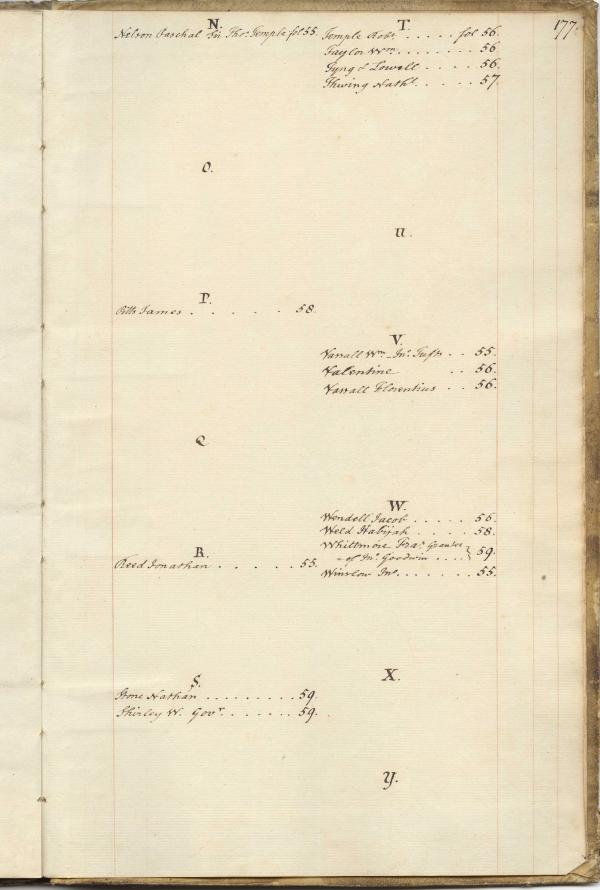 177.
N.
Nelson Paschal in Thos. Temple fol 55.
O.
P.
Pitts James . . . . . . 58.
Q
R.
Reed Jonathan . . . . . . 55.
S.
Stone Nathan . . . . . . . . . 59.
Shirley W. Govr. . . . . . . 59.
T.
Temple Robt. . . . . fol 56.
Taylor Wm. . . . . . . . 56
Tyng & Lowell . . . . . 56.
Thwing Nathl. . . . . . 57.
U.
V.
Vassall Wm. Jno. Tufts . . 55.
Valentine . . 56.
Vassall Florentius . . 56.
W.
Wendell Jacob . . . . . 56.
Weld Habijah . . . . . 58.
Whittmore Fras. Grantee
of Jno. Goodwin . . . . } 59.
Winslow Jno. . . . . . . 55.
X.
Y.